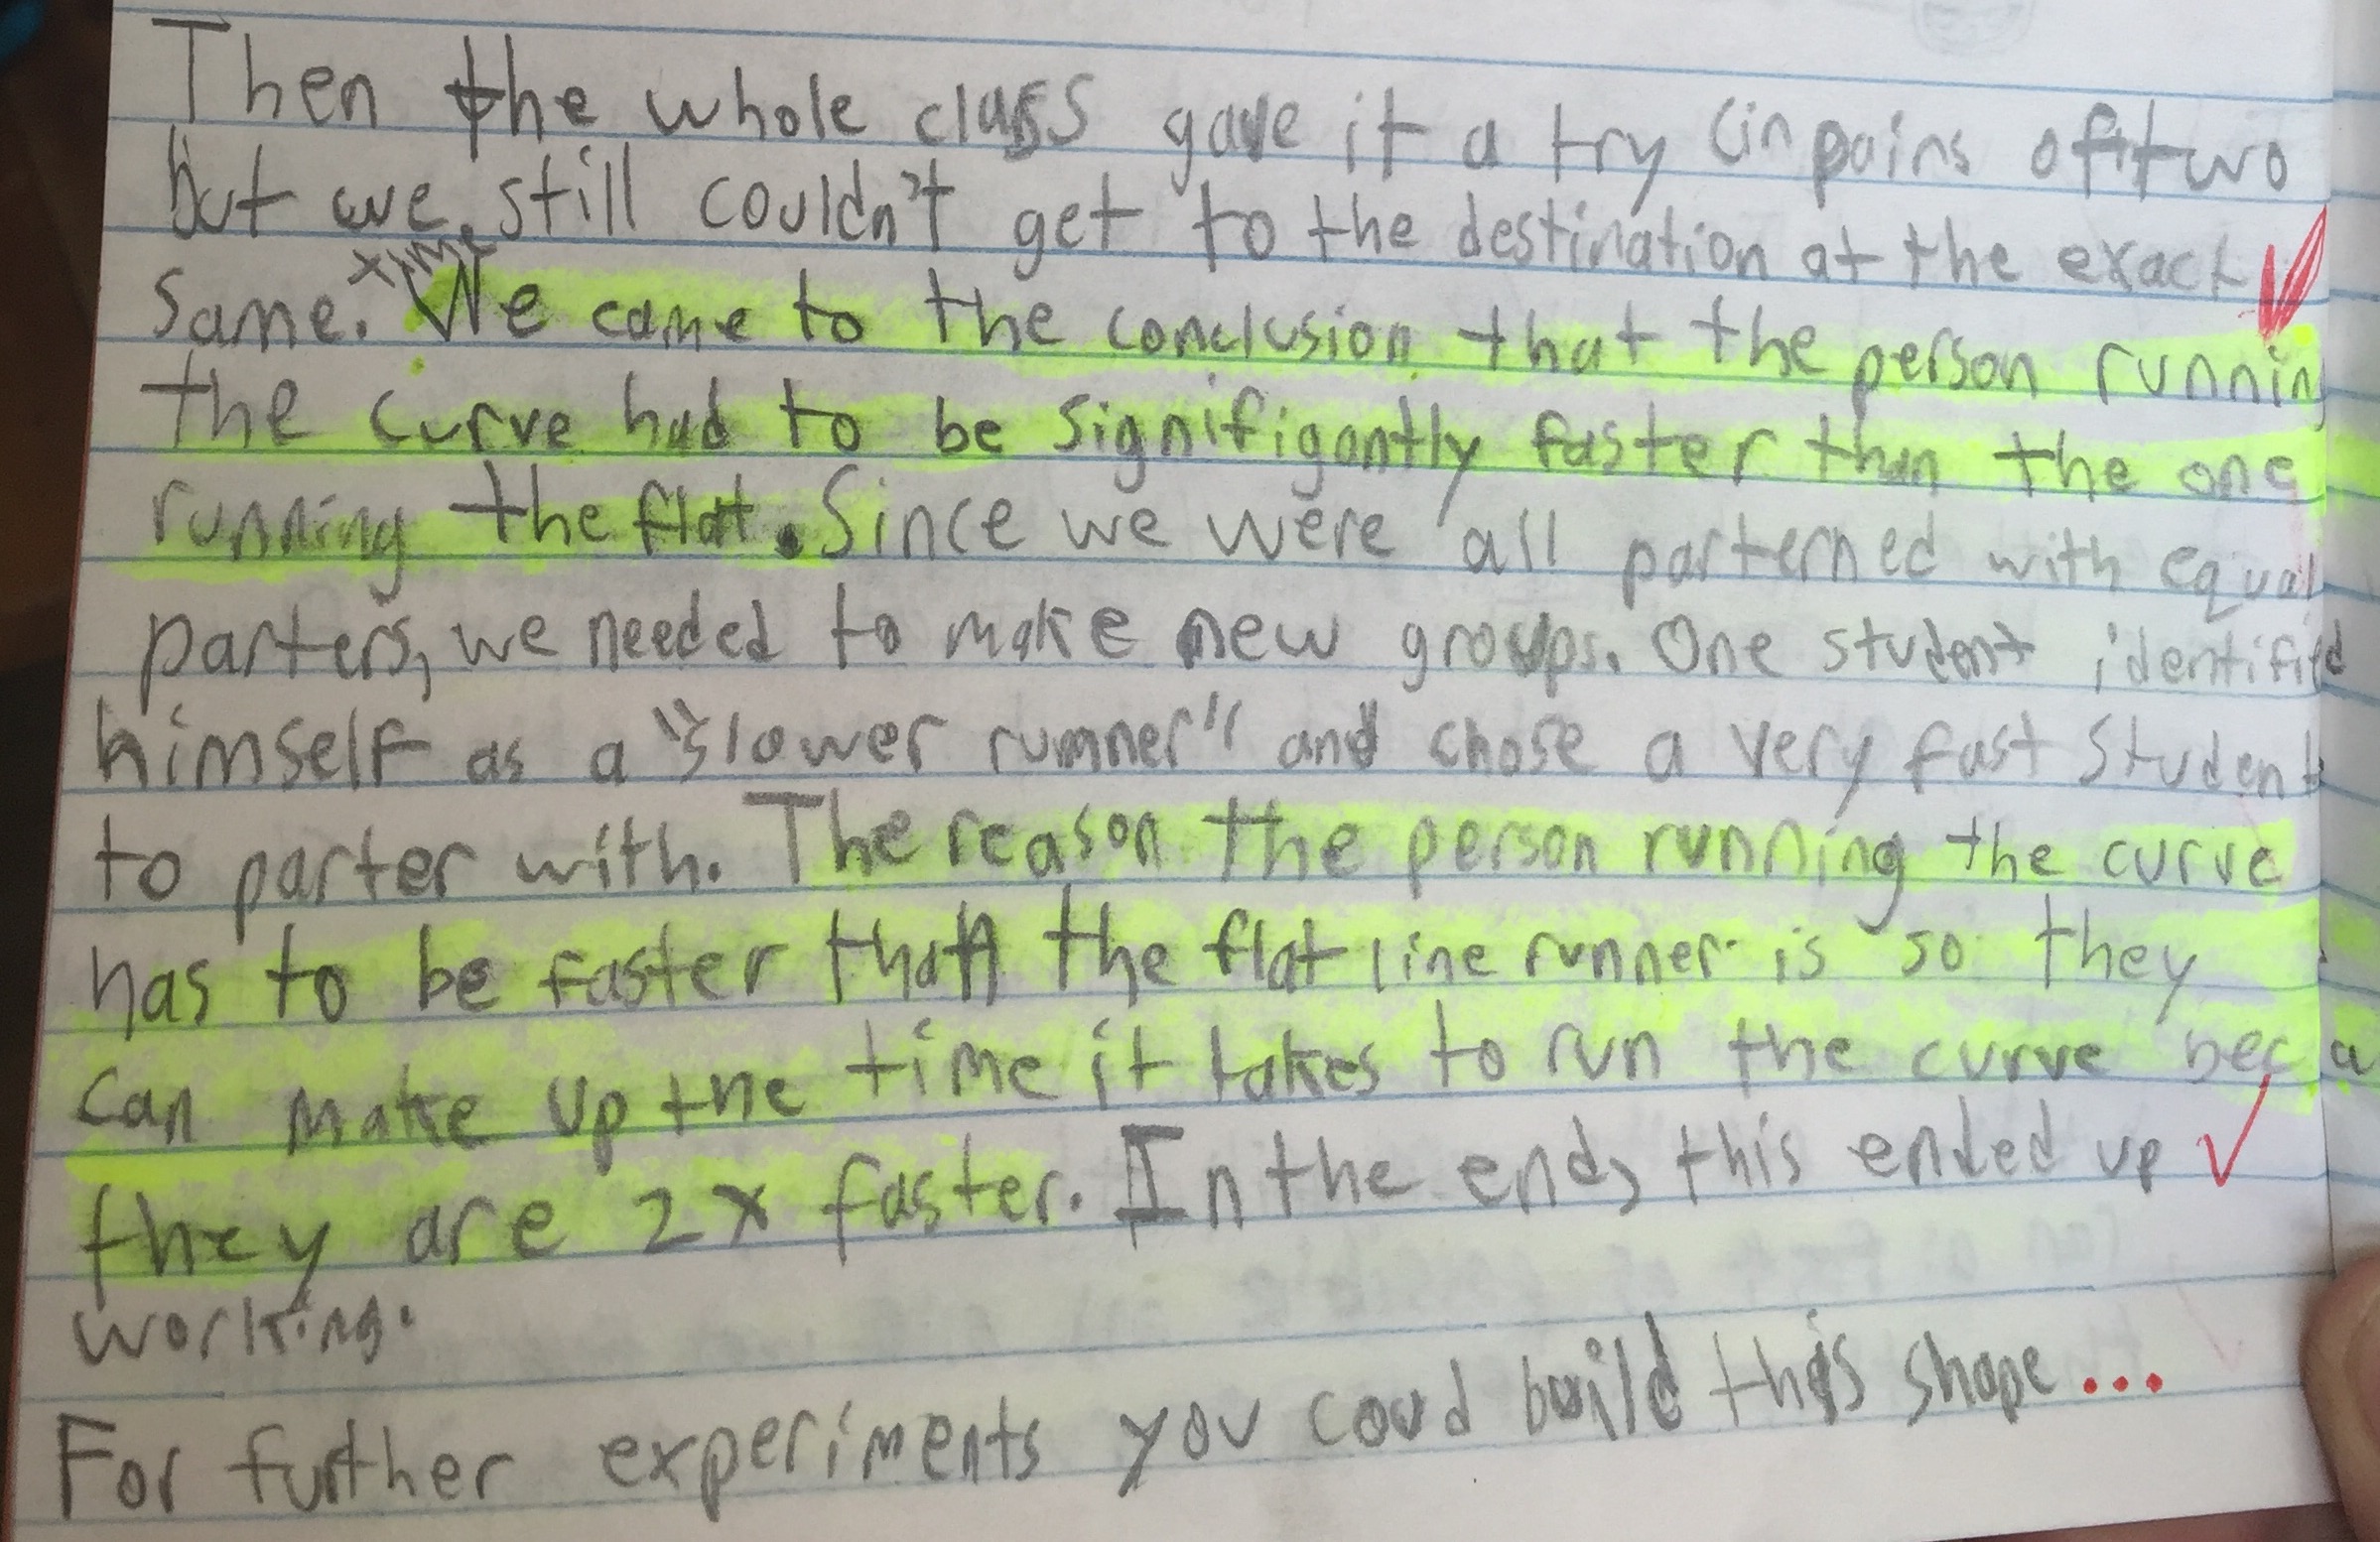 Then the whole class gave it a try (in pairs of two
but we still couldn't get to the destination at the exact
same. time We came to the conclusion that the person running
the curve had to be signifigantly faster than the one
running the flat. Since we were all parterned with equal
parters, we needed to make new groups. One student identified
himself as a "slower runner" and chose a very fast student
to parter with. The reason the person running the curve
has to be faster than the flat line runner is so they
can make up the time it takes to run the curve beca
they are 2x faster. In the end, this ended up
working.
For further experiments you coud build this shape...